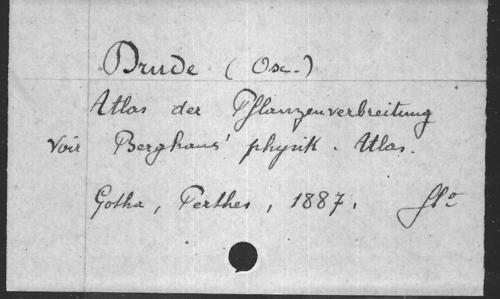 Drude (Osc.)
Atlas der Pflanzenverbreitung
Voir Berghaus' physik. Atlas.
Gotha, Perthes, 1887. flo